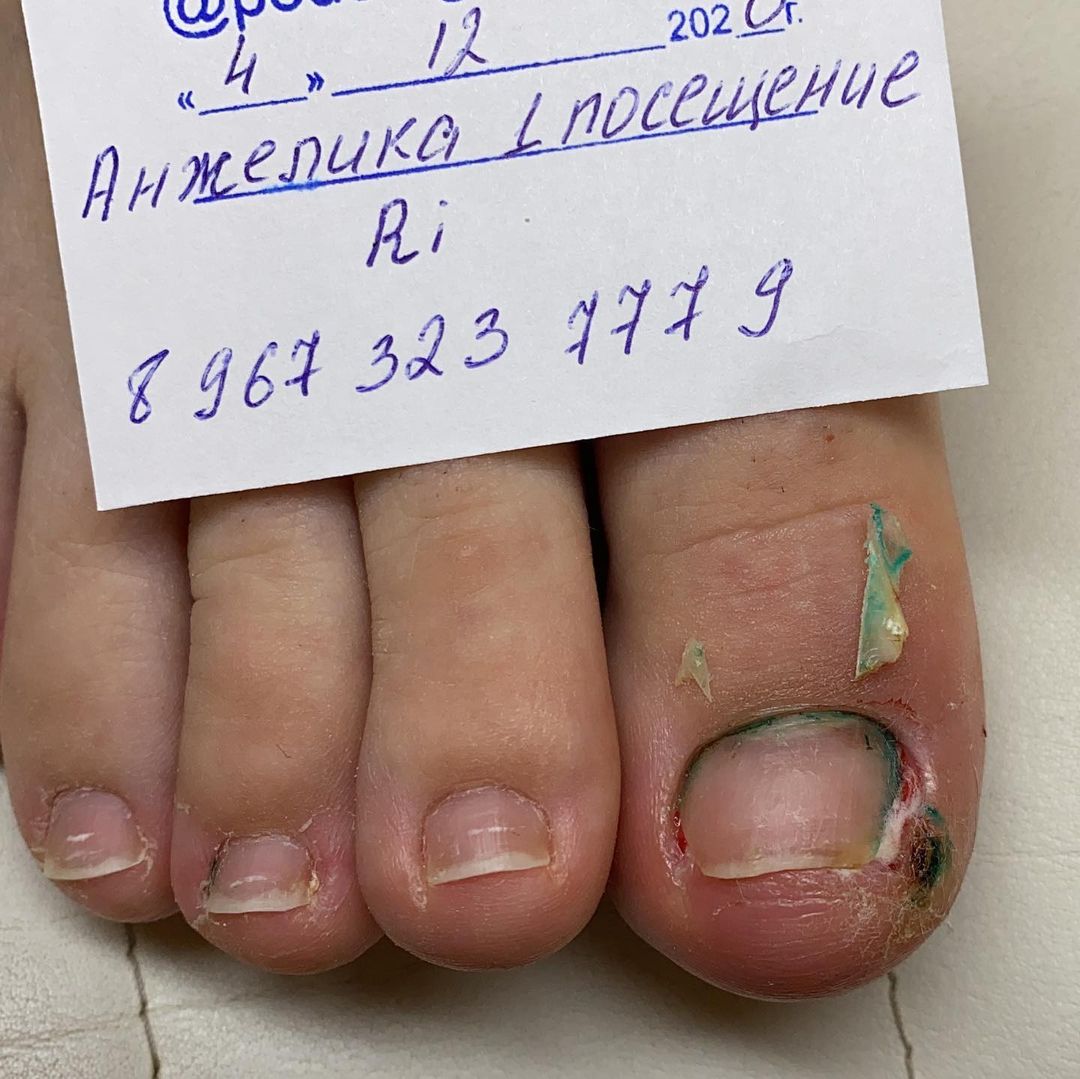 «4» 12 2020г.
Анжелика 1 посещение
Ri
8 967 323 777 9